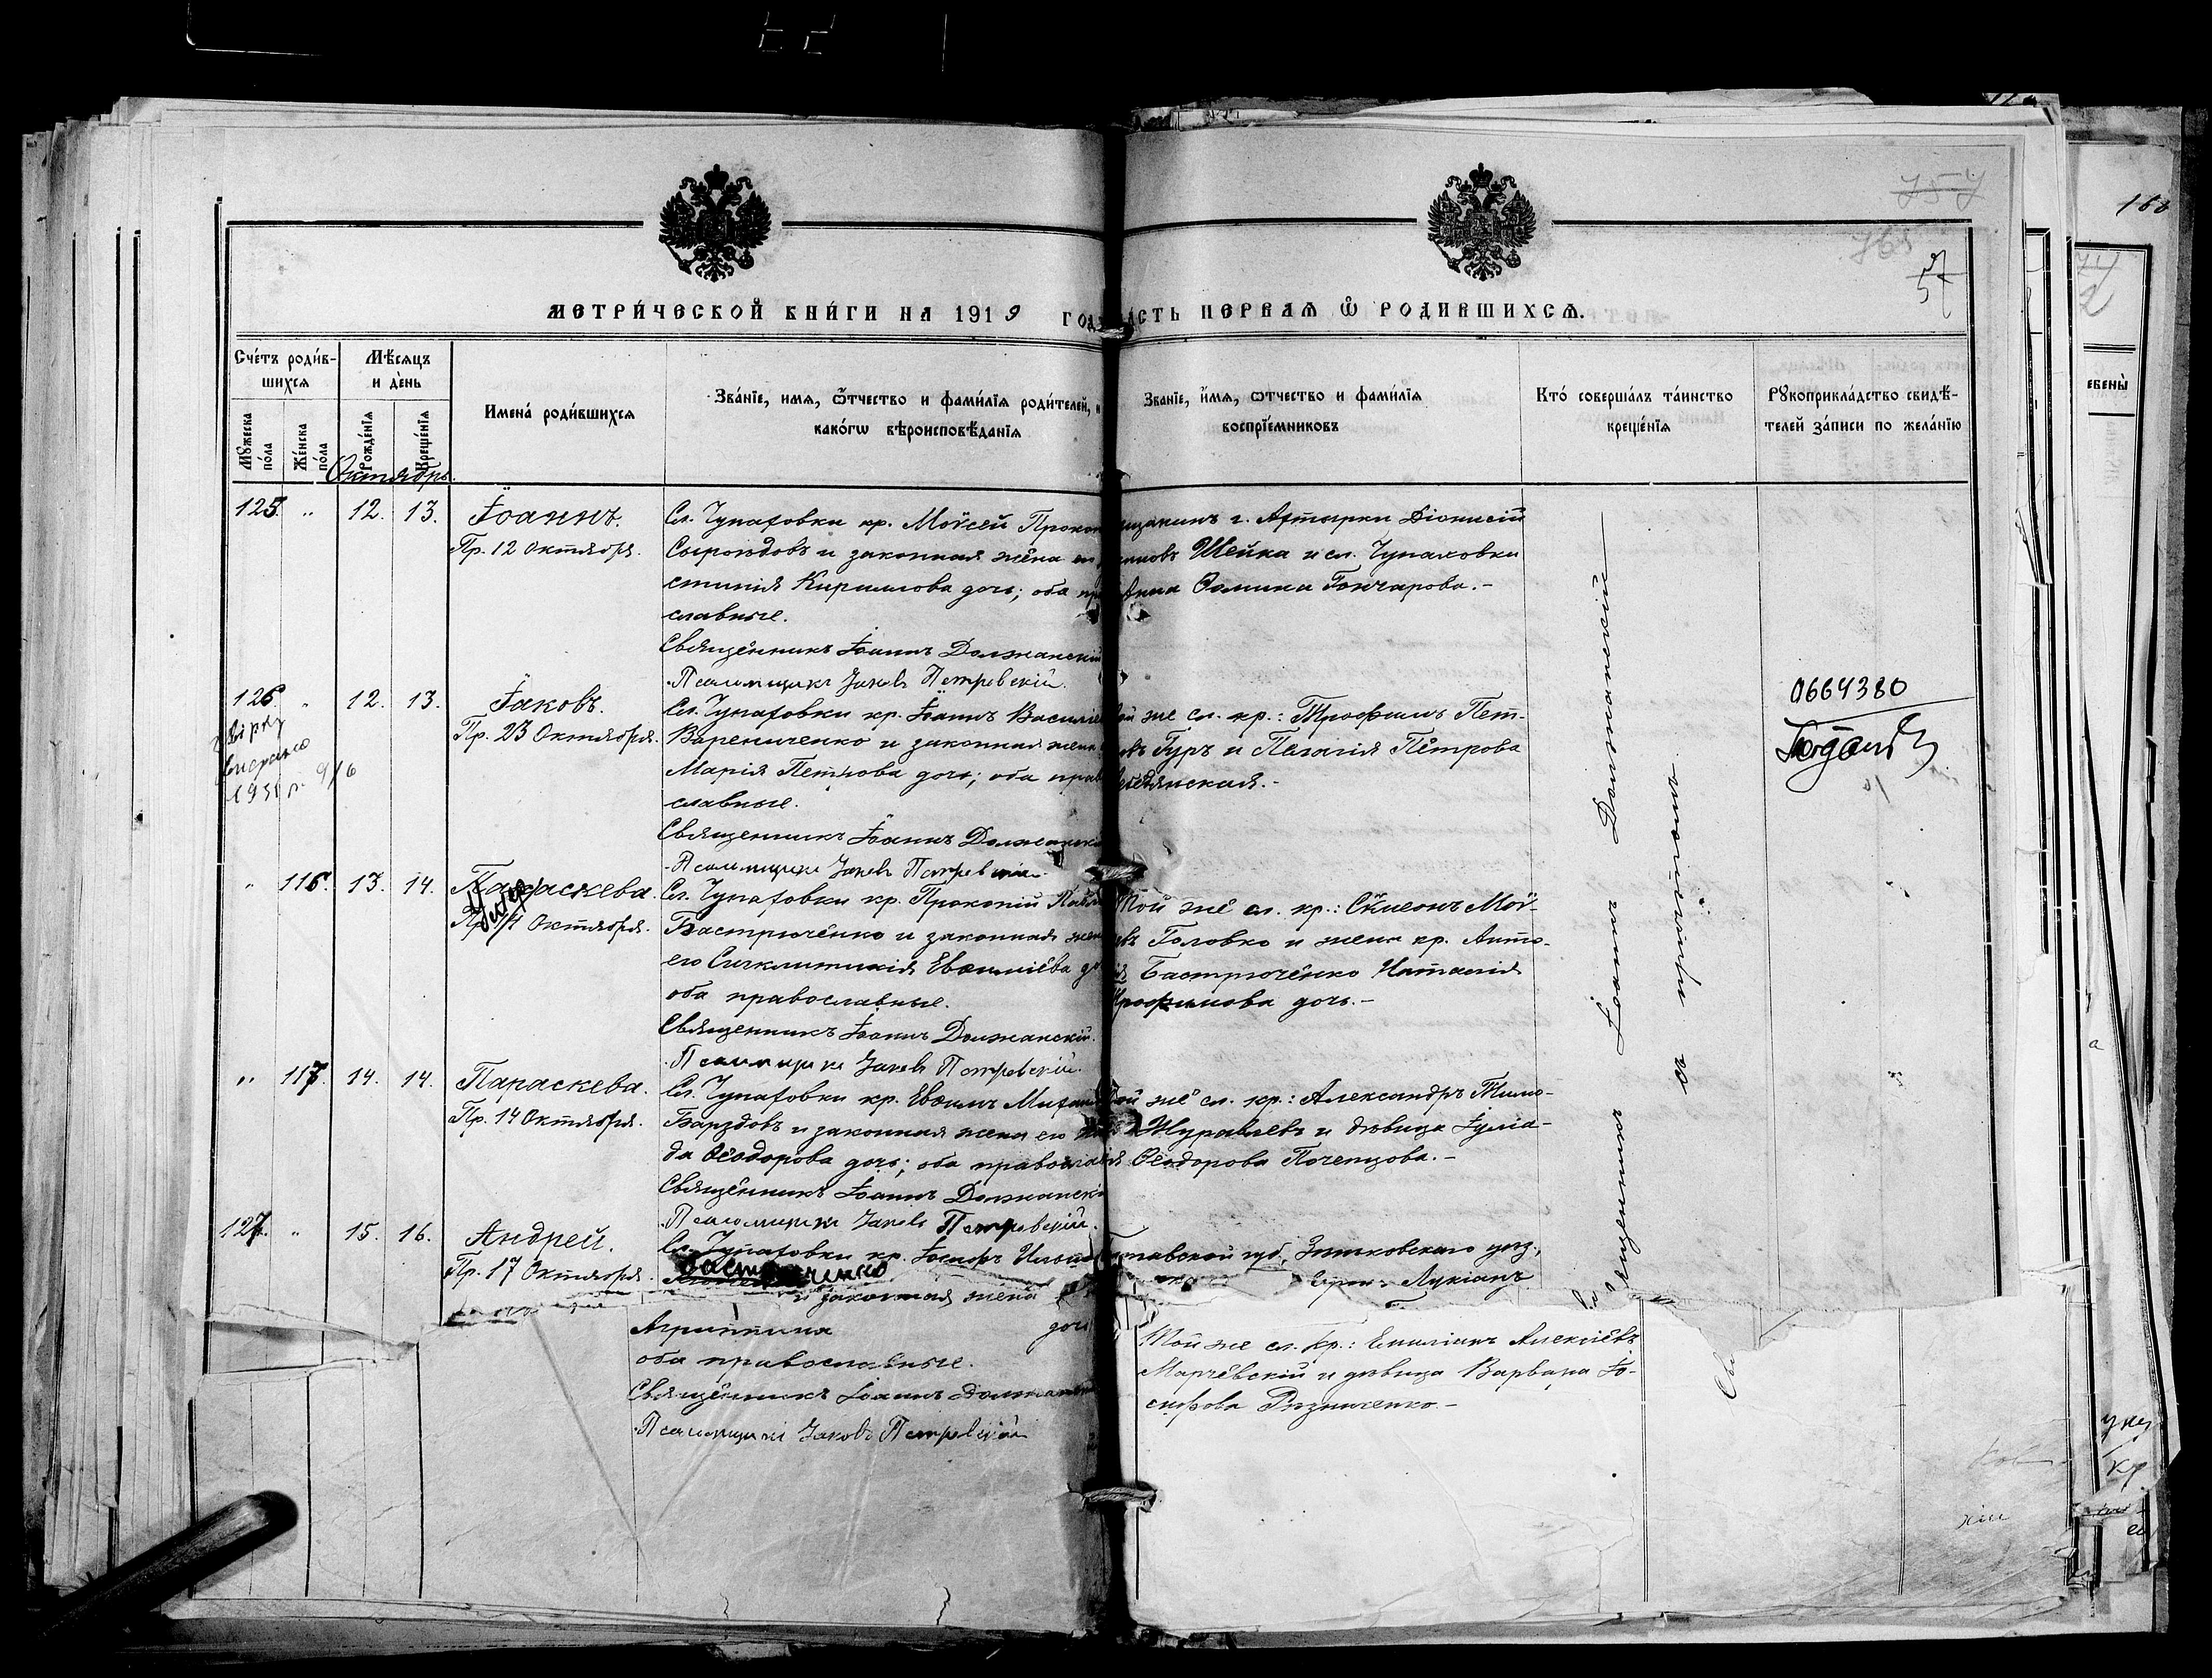 757
765
57
168
МЕТРИ́ЧЕСКОЙ КНИ́ГИ НА 1919 ГОД
ЧАСТЬ ПЕРВАЯ Ѡ РОДИВШИХСѦ.
Сче́тъ роди́в-
шихся
Мѣ́сяцъ
и де́нь
Мꙋ́жеска по́ла
Же́нска по́ла
Рожде́нїя
Креще́нїя
Имена̀ роди́вшихся
Зва́нїе, имя, ѻ҆́тчество и фами́лїя роди́телей, и
како́гѡ вѣроисповѣ́данїя
Зва́нїе, и҆мя, ѻтчество и фами́лїя
воспрїе́мниковъ
Кто̀ соверша́лъ та́инство
креще́нїя
Рꙋкоприкла́дство свидѣ́-
телей за́писи по жела́нїю
Октябрь.
125. " 12. 13. Іоаннъ.
Пр. 12 Октября.
Сл. Чупаховки кр. Моѵсей Прокоп
Сыроѣдовъ и законная жена его
стинія Кириллова дочь; оба пра
славные.
Священникъ Іоаннъ Должанскій
Псаломщикъ Іаковъ Петровскій.
мѣщанинъ г. Ахтырки Діонисій
Шейка и сл. Чупаховки
Анна Ѳомина Гончарова.-
126. " 12. 13. Іаковъ.
Пр. 23 Октября.
звірку
виправлено
Сл. Чупаховки кр. Іоаннъ Василіе
Варениченко и законная жена
Марія Петрова дочь; оба право
славные.
Священникъ Іоаннъ Должанскі
Псаломщикъ Іаковъ Петровскій.
той же сл. кр.: Трофимъ Пет-
ровъ Гуръ и Пелагія Петрова
Лебедянская.-
0664380
" 116. 13. 14. Параскева.
Пр. 14 Октября.
Сл. Чупаховки кр. Прокопій Павл
Бастрюченко и законная жена
его Синклитикія Евѳиміева до
оба православные.
Священникъ Іоаннъ Должанскій.
Псаломщикъ Іаковъ Петровскій.
Той же сл. кр.: Сѵмеонъ Моѵ-
евъ Головко и жена кр. Анто-
нія Бастрюченко Наталія
Трофимова дочь.-
" 117. 14. 14. Параскева.
Пр. 14 Октября.
Сл. Чупаховки кр. Евѳимъ Михаил
и законная жена его
да Ѳеодорова дочь; оба православ
Священникъ Іоаннъ Должанскі
Псаломщикъ Іаковъ Петровскій.
Той же сл. кр.: Александръ Тимо-
Журавлевъ и дѣвица Іуліа-
нія Ѳеодорова Почепцова.-
127. " 15. 16. Андрей.
Пр. 17 Октября.
Сл. Чупаховки кр. Іосифъ
ченко
и законная жена
Агриппина дочь
оба православные.
Священникъ Іоаннъ Должанскій
Псаломщикъ Іаковъ Петровскій
Полтавской губ. Зѣньковскаго уѣз.
Лукіанъ
Той же сл. кр.: Емиліанъ Алексіевъ
Марчевскій и дѣвица Варвара Іо-
сифова Рѣзниченко.-
Священникъ Іоаннъ Должанскій
съ причтомъ.